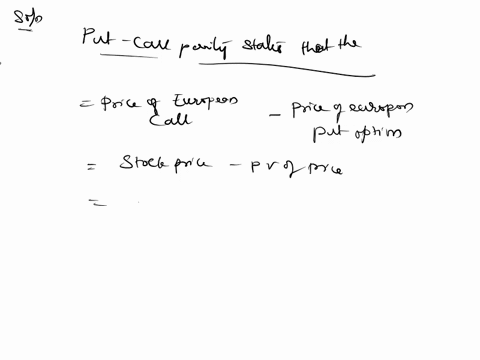 Soln
Put-Call parity states that the
= Price of European Call - Price of european put option
= Stock price - PV of price
=